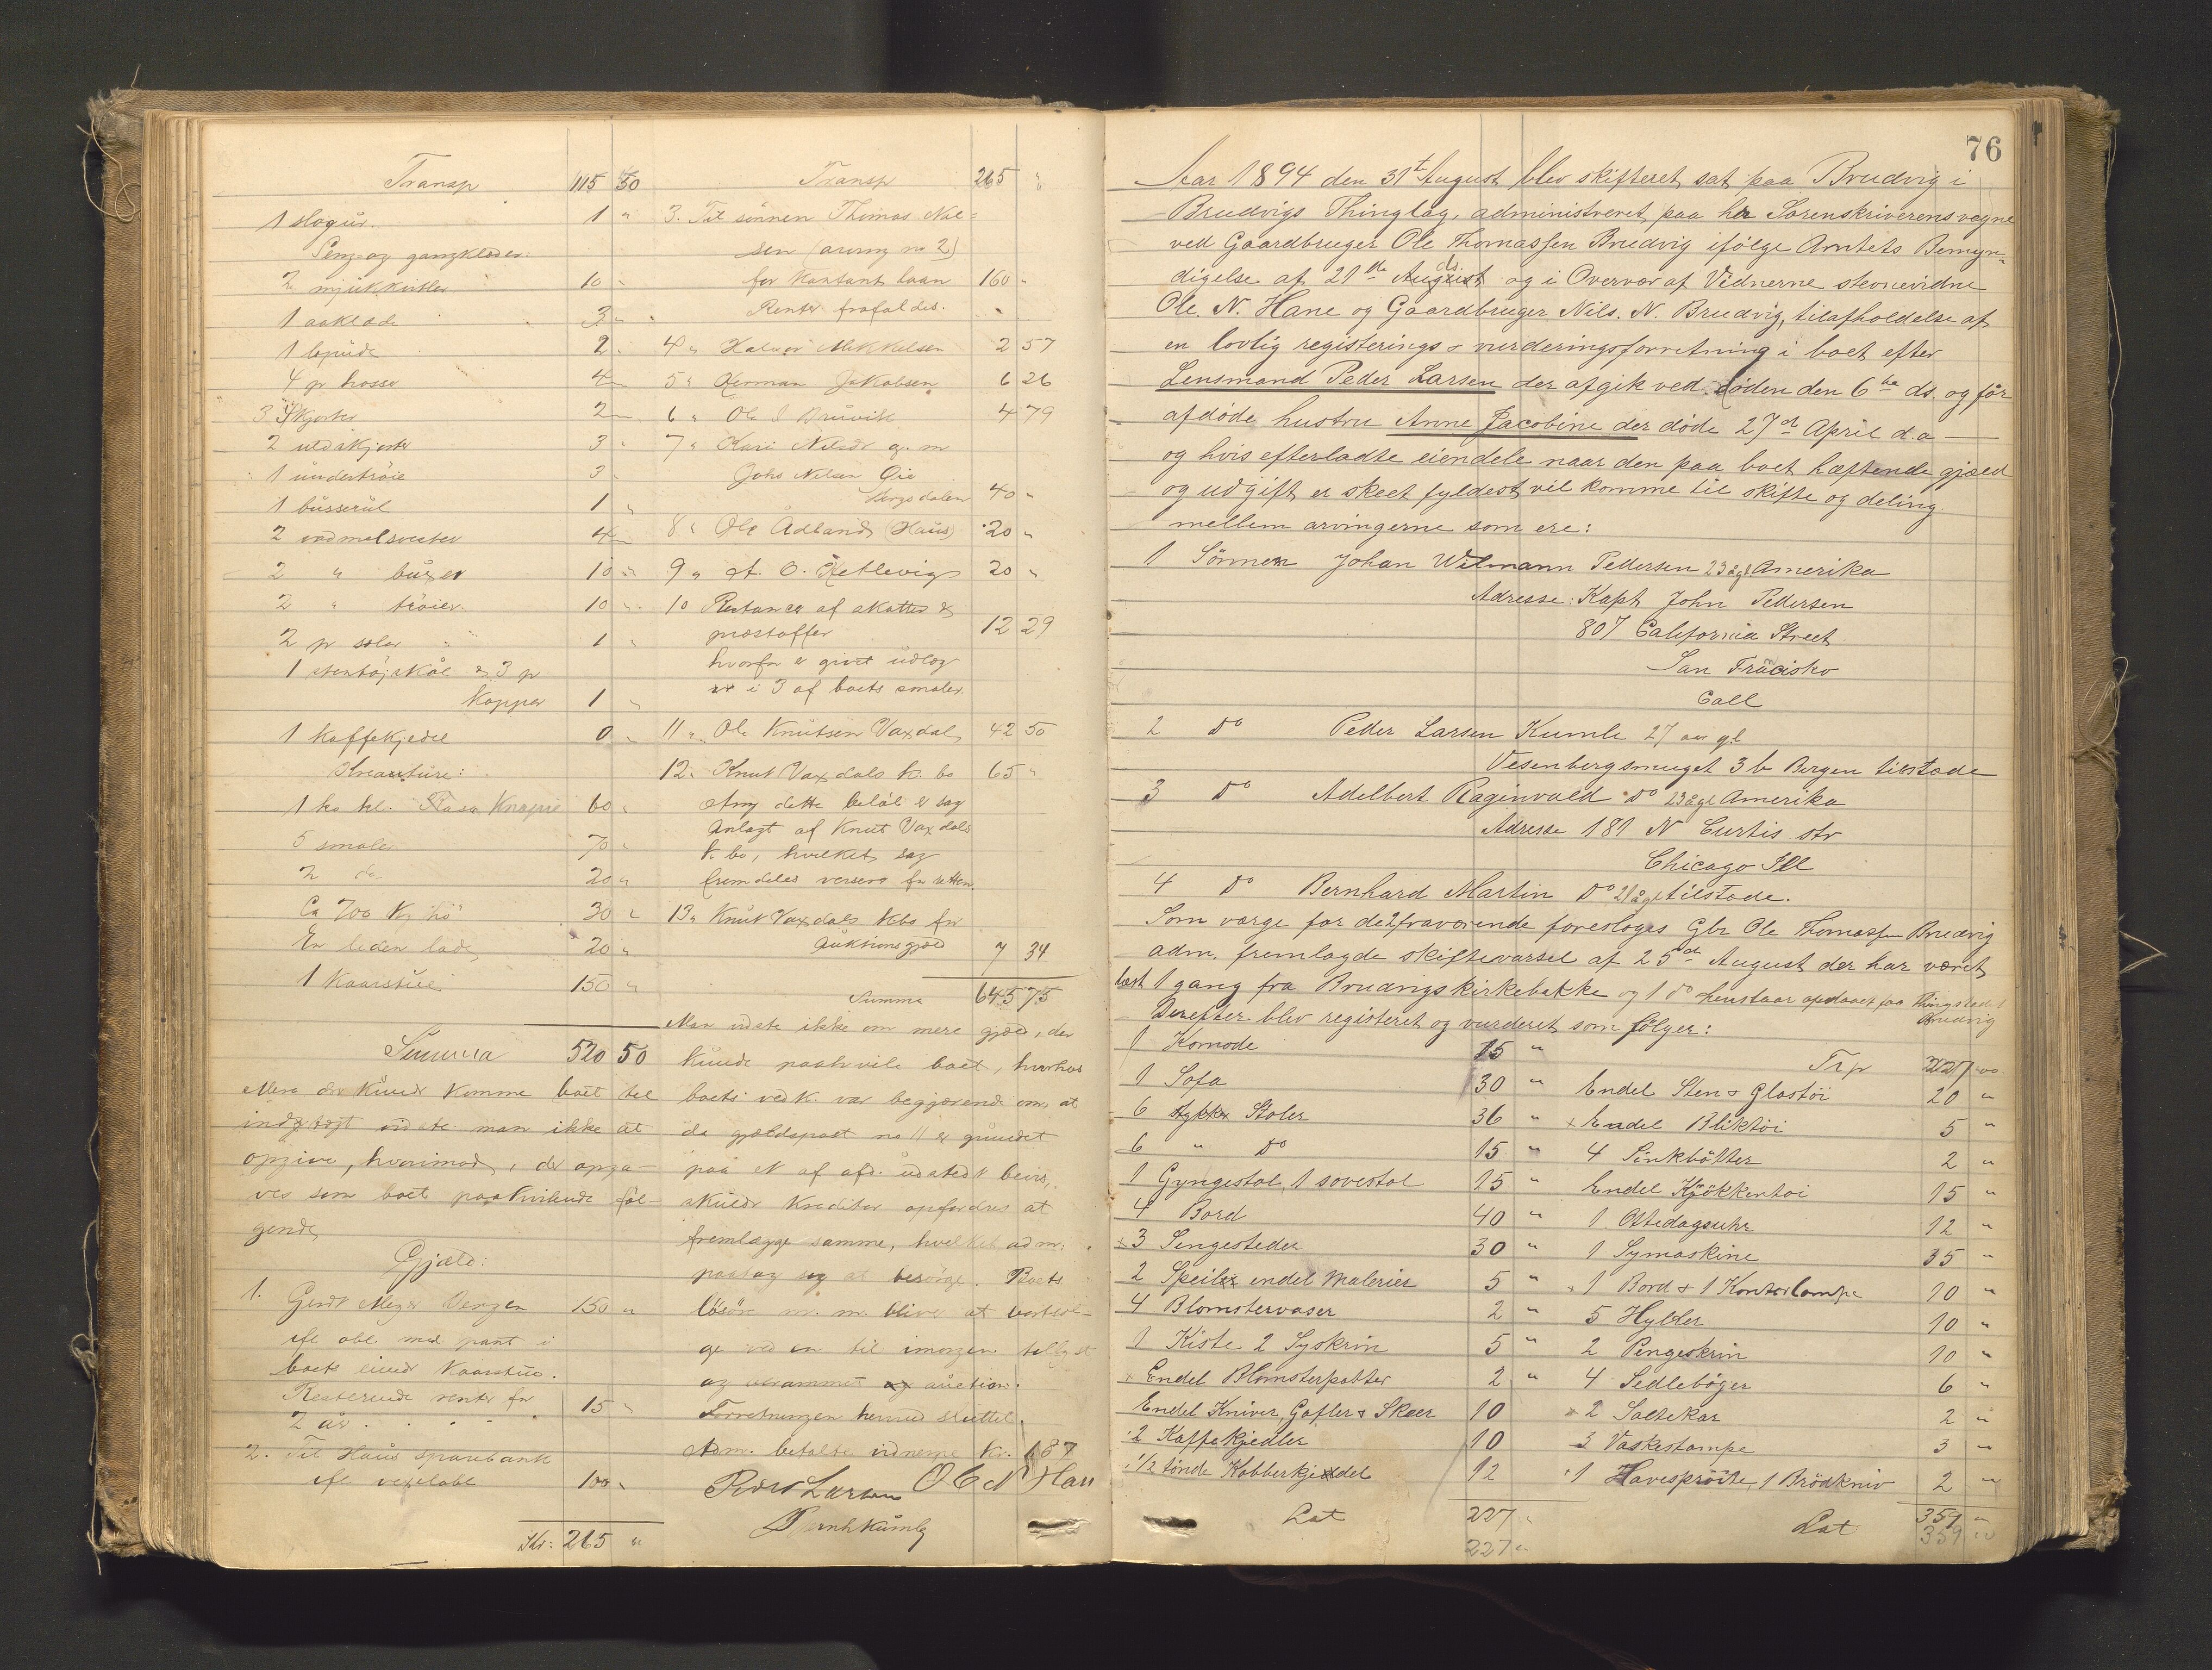 Transp 115 50
1 slagur. 1 "
Seng og gangklæder:
2 mjukkitler 10 "
1 aaklæde 3 "
1 lepude 2 "
4 pr hosser 4 "
3 skjorter 2 "
2 uldskjorter 3 "
1 undertröie 3 "
1 busserul 1 "
2 vadmelsvester 4 "
2 " buxer 10 "
2 " tröier. 10 "
2 pr soler " 1 "
1 stentöjskål & 3 pr
kopper 1 "
1 kaffekjedel 0 "
Kreature:
1 ko kl. Rasa 60 "
5 smaler 70 "
2 do 20 "
Ca 700 Kg hö 30 "
En liden lade, 20 "
1 Kaarstue 150 "
Summa 520 50
Mere der kunde komme boet til
indtægt vidste man ikke at
opgive, hvorimod, der opga-
ves som boet paahvilende föl-
gende
Gjæld:
1. Gerdt Meyer Bergen 150 "
ifl obl. med pant i
boets eiende Kaarstue.
Resterende renter for
2 år . . . . 15 "
2. Til Haus sparebank
ifl vexelobl 100 "
265 "
Transp 265 "
3. Til sönnen Thomas Nil-
sen (arving no 2)
for kontant laan 160 "
Renter frafaldes.
4 " Halvor Mikkelsen 2 57
5 " Herman Jakobsen 6 26
6 " Ole I Bruvik 4 79
7 " Kari Nilsdr g. m
Johs Nilsen Öie
Bergsdalen 40 "
8 " Ole Ådland (Haus) 20 "
9 " A. O. Hetlevig 20 "
10 Restancer af skatter &
prestoffer 12 29
hvorfor er givet udlæg
i 3 af boets smaler.
11 " Ole Knutsen Vaxdal 42 50
12. Knut Vaxdals k. bo 65 "
Ang dette belöb er sag
anlagt af Knut Vaxdals
k. bo, hvilket sag
fremdeles verserer for retten
13 " Knut Vaxdals kbo for
auktionsgjæld 7 34
Summa 645 75
Man vidste ikke om mere gjæld, der
kunde paahvile boet, hvorhos
boets vedk. var begjærende om, at
da gjældspost no 11 er grundet
paa et af afd. udstedt bevis,
skulde kreditor opfordres at
fremlægge samme, hvilket adm.
paatog sig at besörge. Boets
lösöre m. m. bliver at bortsæl-
ge ved en til imorgen tillyst
og berammet auction.
Forretningen hermed sluttet.
Adm. betalte vidnerne kr. 1 87
Peder Larsen Ole N Han
Bernh Kumle
76
Aar 1894 den 31t August blev skifteret sat paa Brudvig i
Brudvigs Thinglag, administreret paa hr Sorenskriverens vegne
ved Gaardbruger Ole Thomassen Brudvig ifölge Amtets Bemyn-
digelse af 21de August ds. og i Overvær af Vidnerne stevnevidne
Ole. N. Hane og Gaardbruger Nils. N. Brudvig, til afholdelse af
en lovlig registerings & vurderingsforretning i boet efter
Lensmand Peder Larsen der afgik ved döden den 6te ds. og för
afdöde hustru Anne Jacobine der döde 27de April d.a
og hvis efterladte eiendele naar den paa boet hæftende gjæld
og udgift er skeet fyldest vil komme til skifte og deling
mellem arvingerne som ere:
1 Sönnen Johan Wilmann Pedersen 23 å gl. Amerika
Adresse: Kapt John Pedersen
807 California Street
San Francisko
Call
2 do Peder Larsen Kumle 27 aar gl
Vesenbergsmuget 3 b Bergen tilstede
3 do Adelbert Raginvald do 23 å gl Amerika
Adresse 181 N Curtis str
Chicago Ill
4 do Bernhard Martin do 21 å gl tilstede.
Som værge for de 2 fraværende foresloges Gbr Ole Thomassen Brudvig
adm. fremlagde skiftevarsel af 25de August der har været
læst 1 gang fra Brudvigs kirkebakke og 1 do paa Thingstedet
Brudvig
Derefter blev registeret og vurderet som fölger:
1 Komode 15 "
1 Sofa 30 "
6 stykker Stoler 36 "
6 " do 15 "
1 Gyngestol, 1 sovestol 15 "
4 Bord 40 "
x 3 Sengesteder 30 "
2 Speiler endel malerier 5 "
4 Blomstervaser 2 "
1 Kiste 2 Syskrin 5 "
x Endel Blomsterpotter 2 "
Endel Kniver, Gafler & Skeer 10
2 Kaffekjedler 10
1/2 tönde Kobberkjeddel 12
Lat 227 "
227 "
Trp 227 oo
Endel Sten & Glastöi 20 "
x Endel Bliktöi 5 "
4 Sinkbötter 2 "
Endel Kjökkentöi 15 "
1 Ottedagsuhr 12 "
1 Symaskine 35 "
1 Bord & 1 Kontorlampe 10 "
5 Hylder 10 "
2 Pengeskrin 10 "
4 Sedlebøger 6 "
2 Saltekar 2 "
3 Vaskestampe 3 "
1 Havesprøite, 1 Brödkniv 2 "
Lat 359 "
359 oo